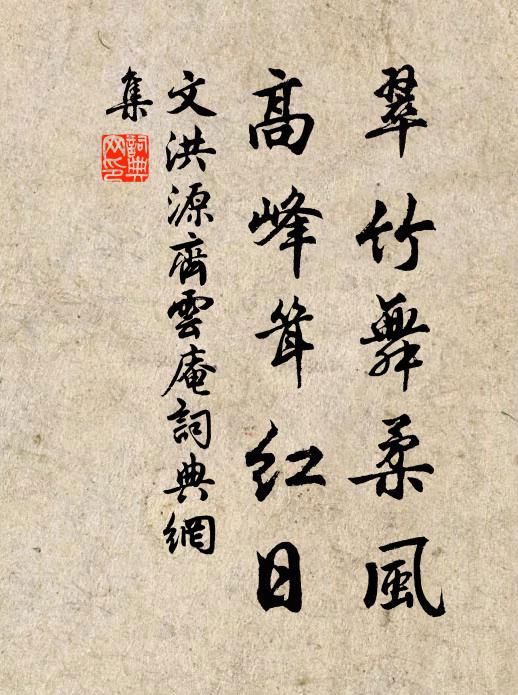 翠竹舞柔風
高峰聳紅日
文洪源齊雲庵詞典網
集
詞典网印